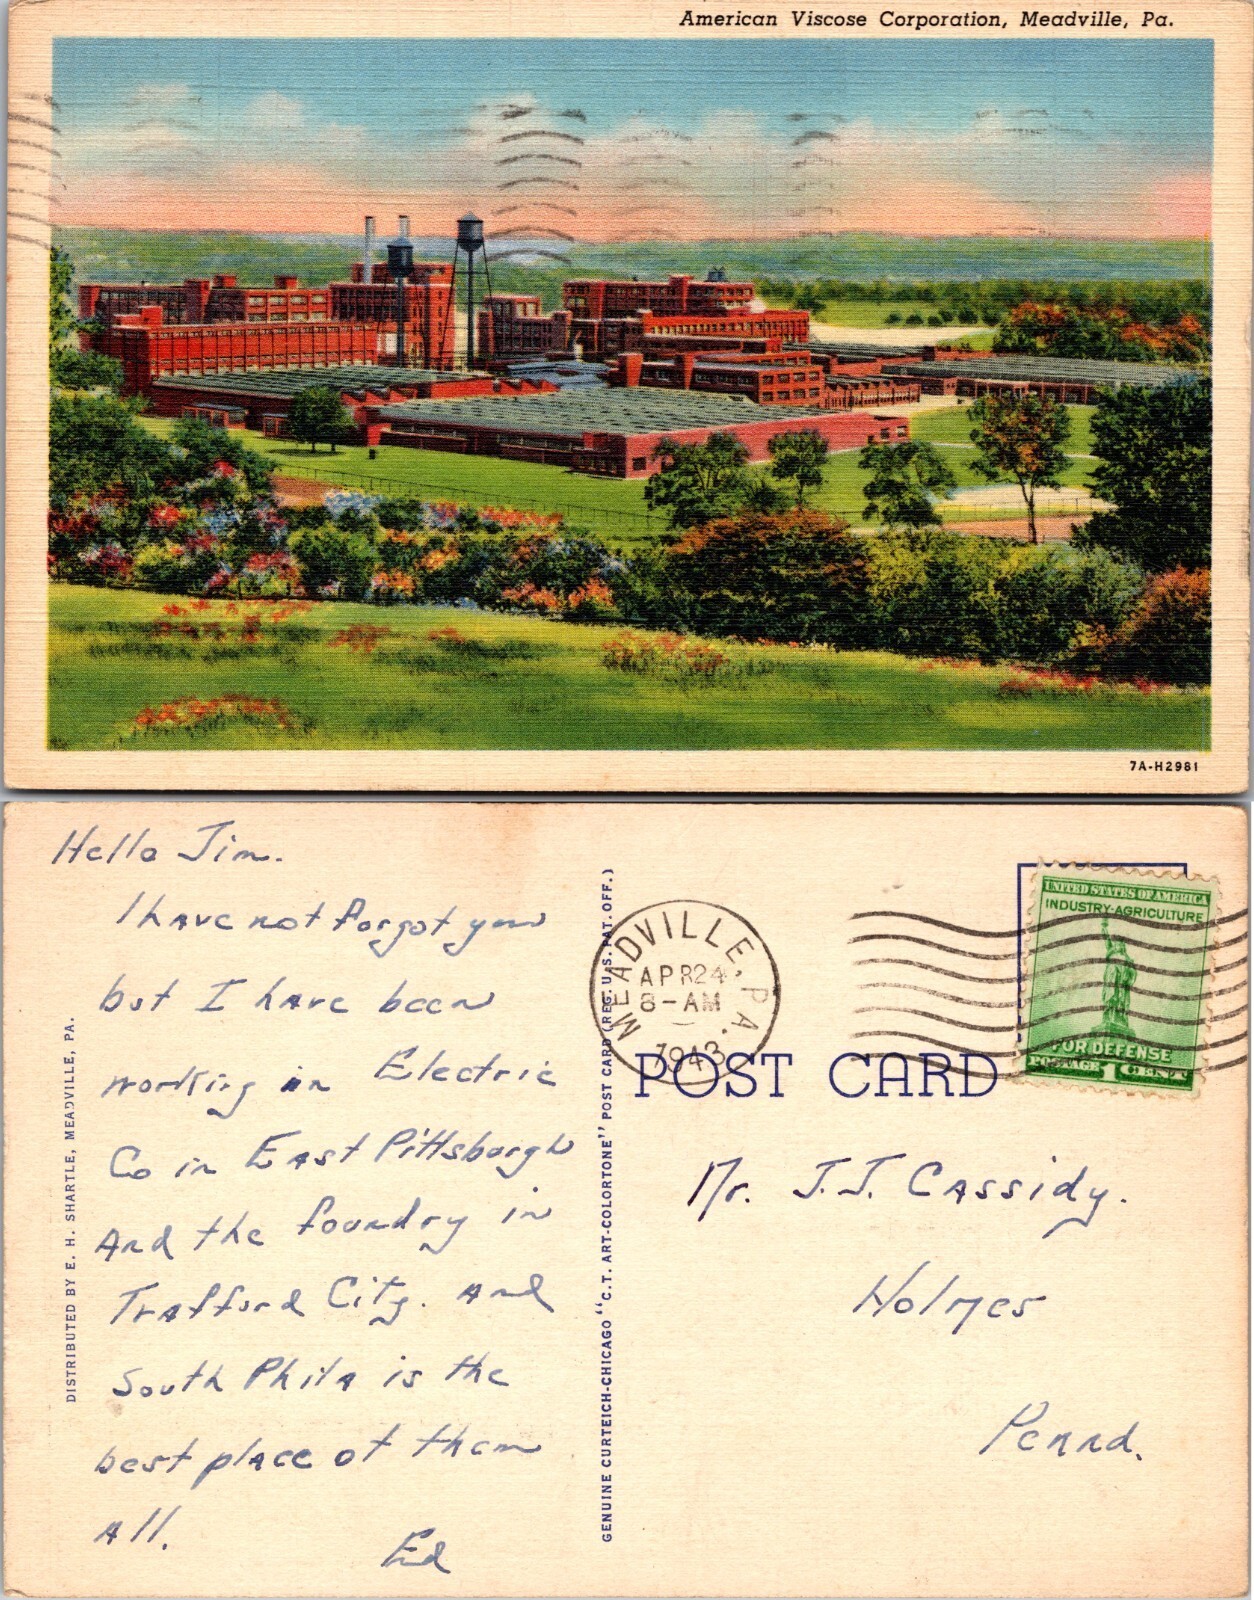 American Viscose Corporation, Meadville, Pa.
7A-H2981
Hello Jim.
I have not forgot you
but I have been
working in Electric
Co in East Pittsburgh
And the foundry in
Trafford City. And
South Phila is the
best place of them
All.
Ed
DISTRIBUTED BY E. H. SHARTLE, MEADVILLE, PA.
GENUINE CURTEICH-CHICAGO "C.T. ART-COLORTONE" POST CARD (REG. U.S. PAT. OFF.)
MEADVILLE, PA.
APR 24
8-AM
1943
UNITED STATES OF AMERICA
INDUSTRY-AGRICULTURE
FOR DEFENSE
POSTAGE 1 CENT
POST CARD
Mr. J.J. Cassidy.
Holmes
Penna.